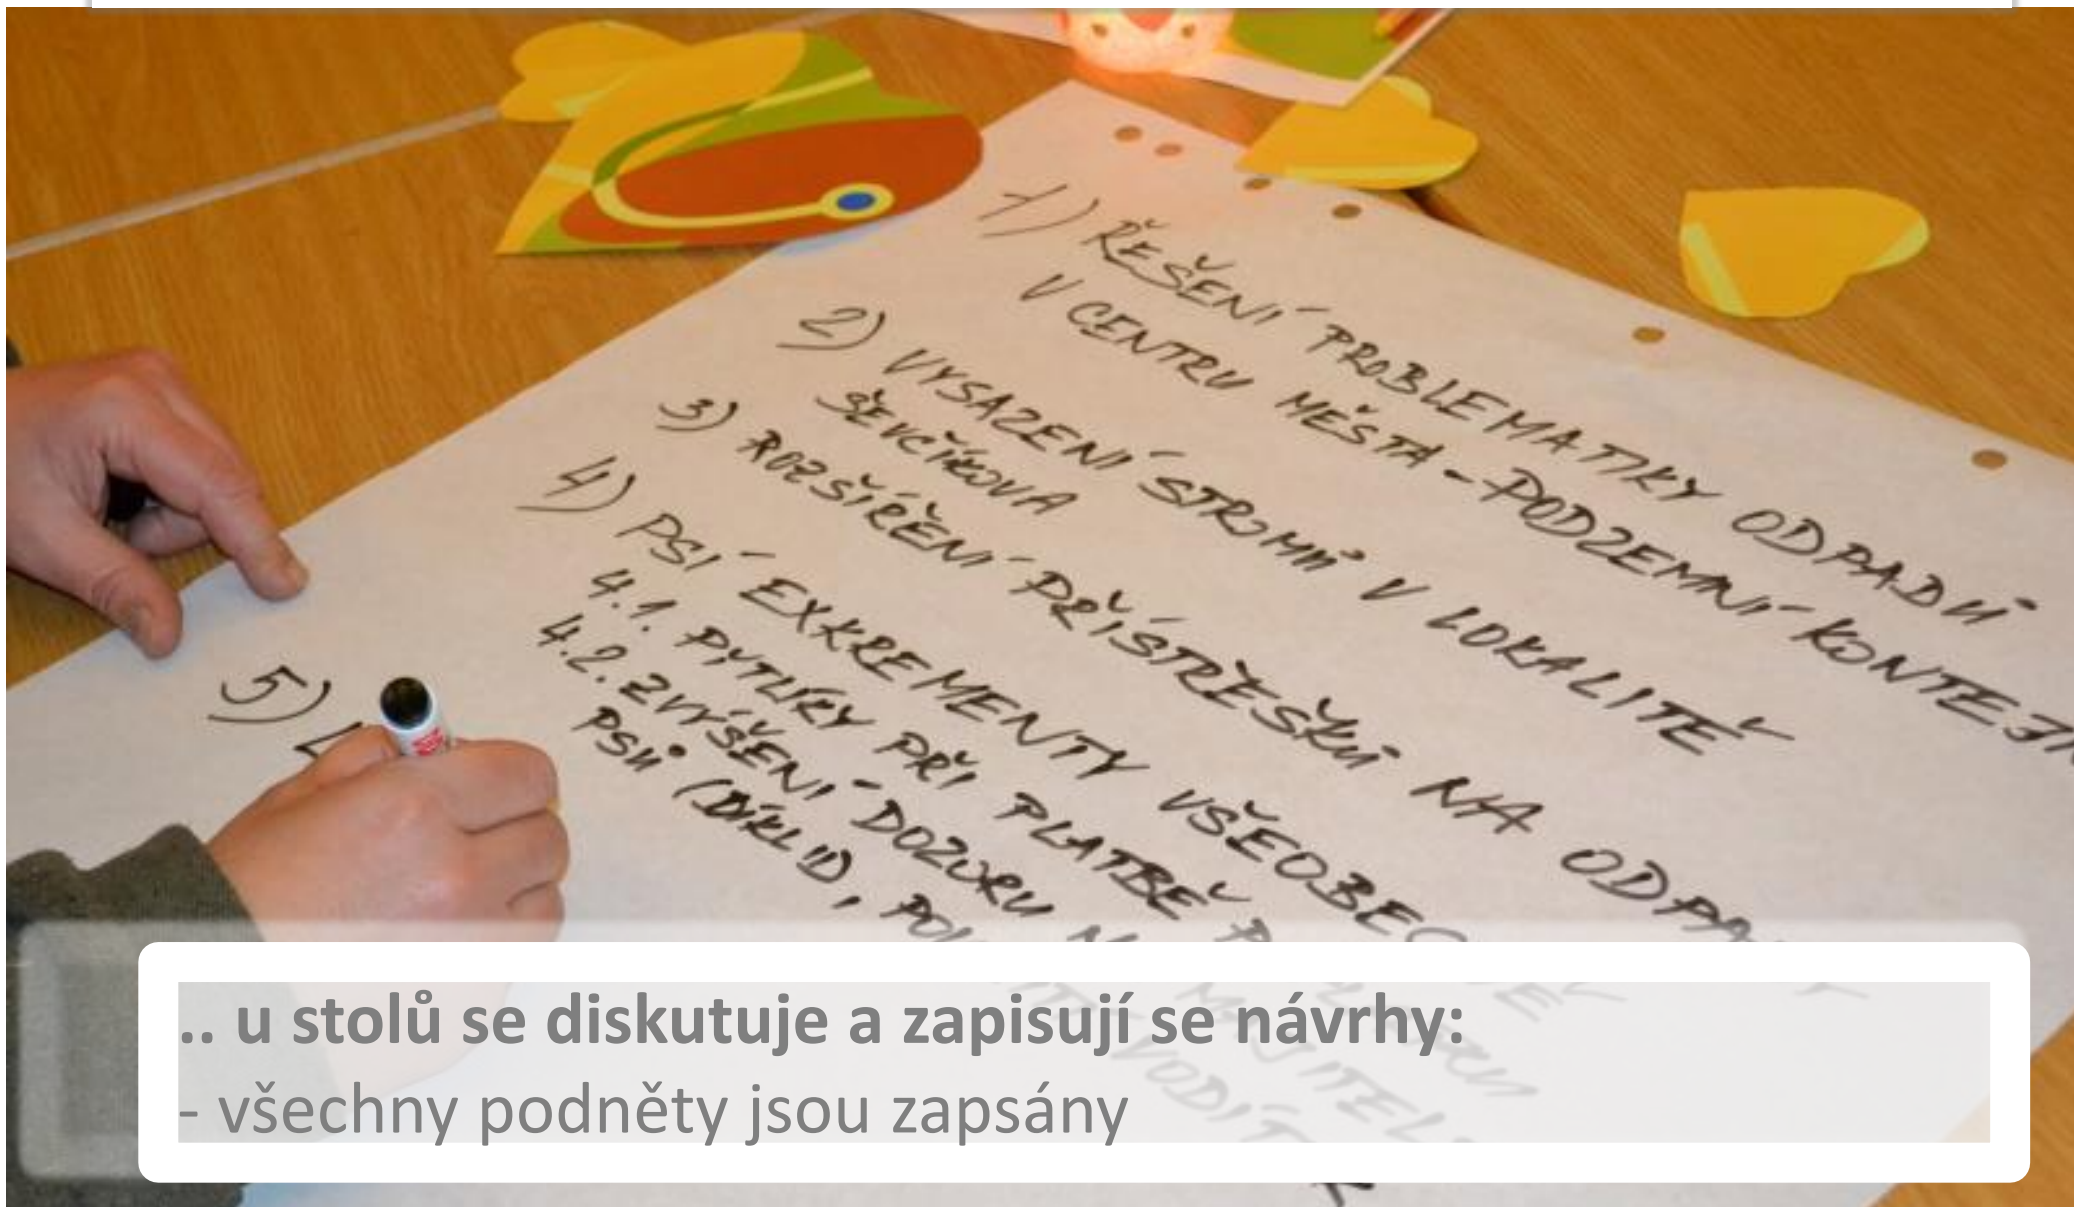 1) ŘEŠENÍ PROBLEMATIKY ODPADŮ
V CENTRU MĚSTA - PODZEMNÍ KONTEJN
2) VYSAZENÍ STROMŮ V LOKALITĚ
ŠEVČÍKOVA
3) ROZŠÍŘENÍ PŘÍSTŘEŠKŮ NA ODPA
4) PSÍ EXKREMENTY VŠEOBEC
4.1. PYTLÍKY PŘI PLATBĚ
4.2. ZVÝŠENÍ DOZORU
PSŮ
5)
.. u stolů se diskutuje a zapisují se návrhy:
- všechny podněty jsou zapsány